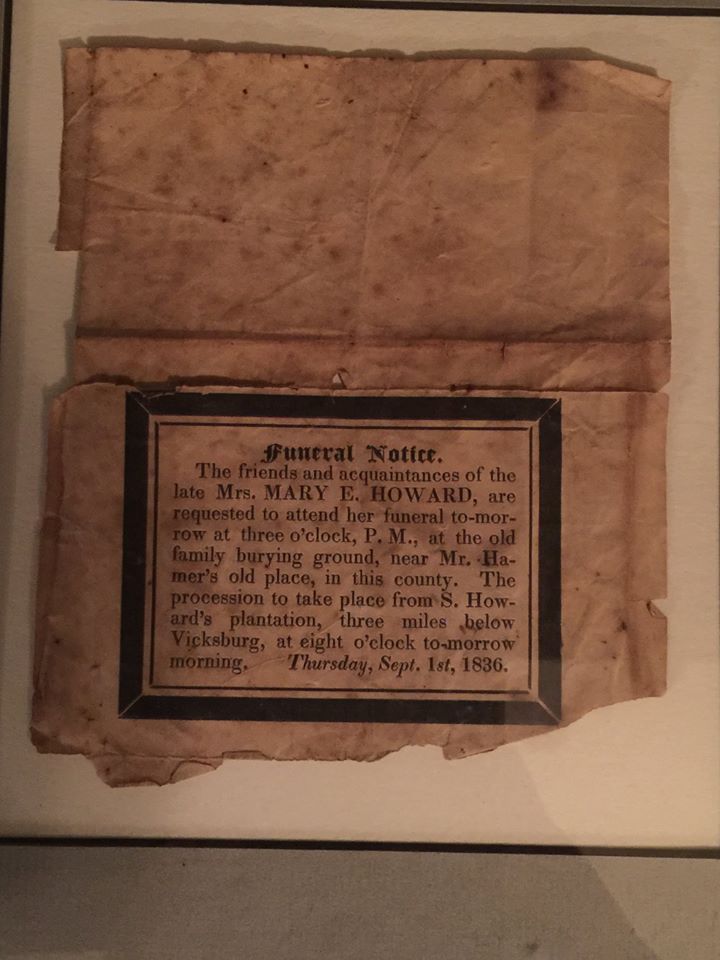 Funeral Notice.
The friends and acquaintances of the
late Mrs. MARY E. HOWARD, are
requested to attend her funeral to-mor-
row at three o'clock, P. M., at the old
family burying ground, near Mr. Ha-
mer's old place, in this county. The
procession to take place from S. How-
ard's plantation, three miles below
Vicksburg, at eight o'clock to-morrow
morning. Thursday, Sept. 1st, 1836.